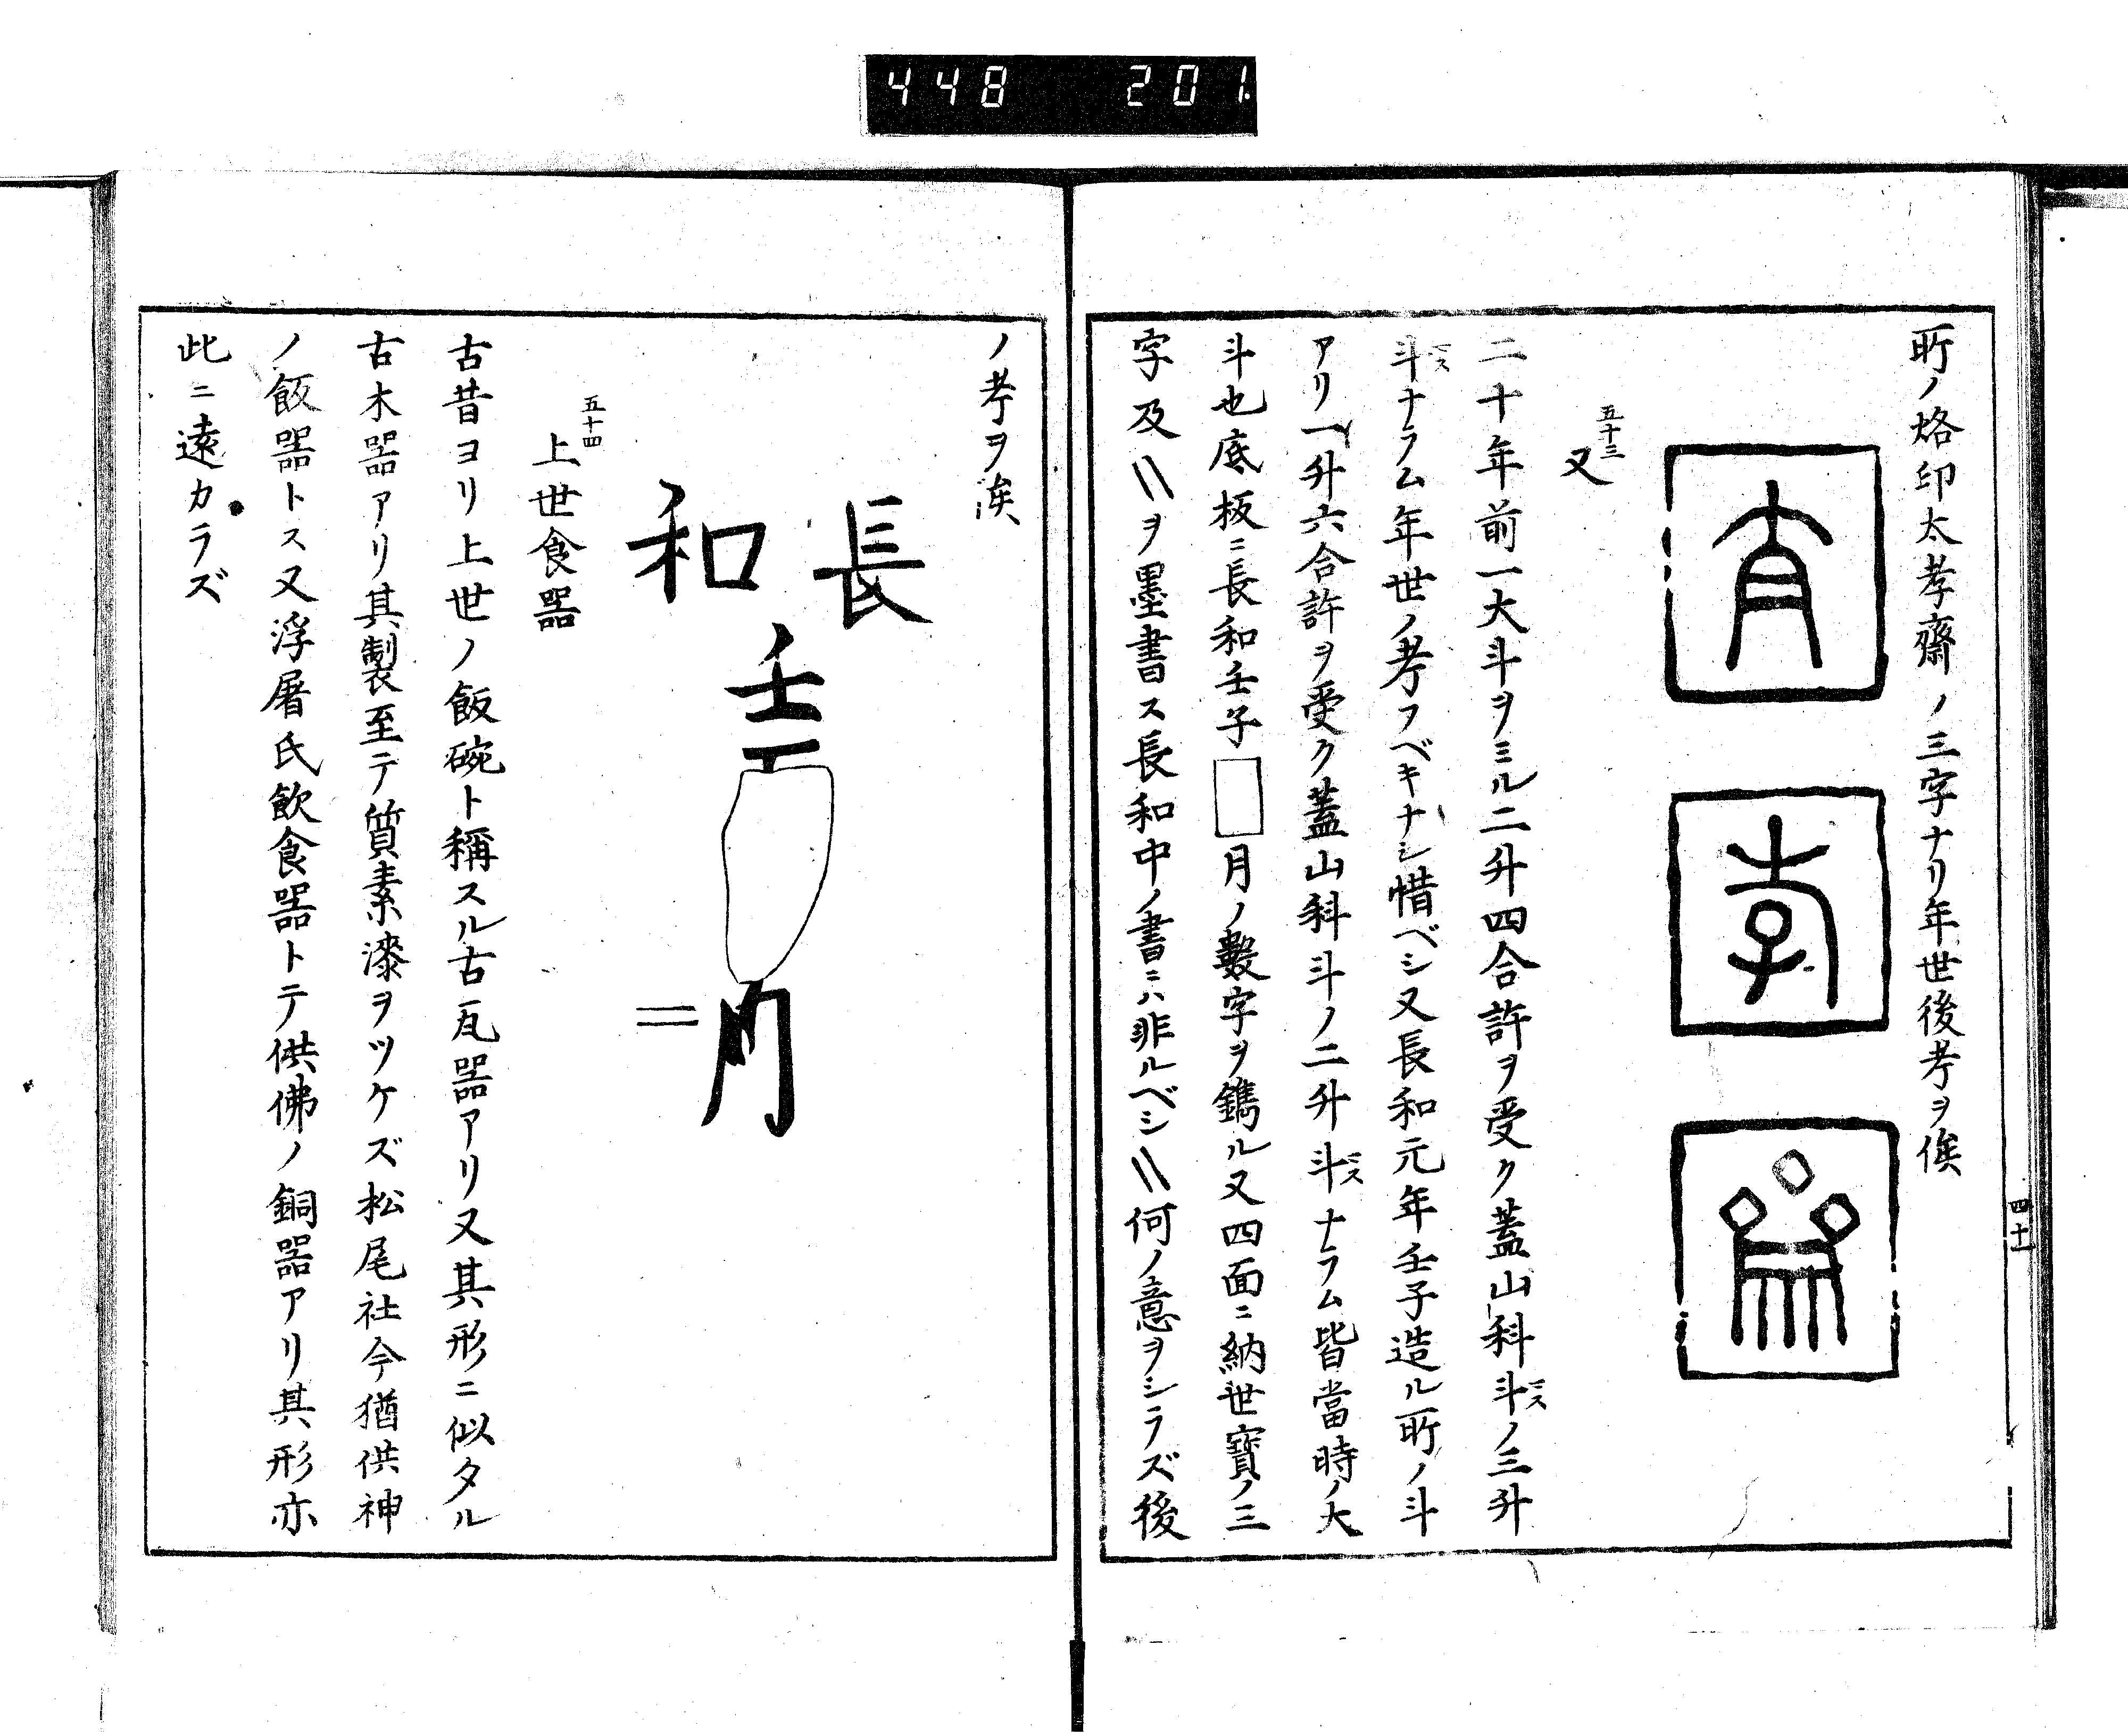 448 201
所ノ烙印太孝齋ノ三字ナリ年世後考ヲ俟
孝
五十三
又
二十年前一大斗ヲミル二升四合許ヲ受ク蓋山科斗ノ三升
斗ナラム年世ノ考フベキナシ惜ベシ又長和元年壬子造ル所ノ斗
アリ一升六合許ヲ受ク蓋山科斗ノ二升斗ナラム皆當時ノ大
斗也底板ニ長和壬子□月ノ數字ヲ鐫ル又四面ニ納世寳ノ三
字及〵〵ヲ墨書ス長和中ノ書ニハ非ルベシ〵〵何ノ意ヲシラズ後
四十一
ノ考ヲ俟
長
和
壬
月
五十四
上世食器
古昔ヨリ上世ノ飯碗ト稱スル古瓦器アリ又其形ニ似タル
古木器アリ其製至テ質素漆ヲツケズ松尾社今猶供神
ノ飯器トス又浮屠氏飲食器トテ供佛ノ銅器アリ其形亦
此ニ遠カラズ